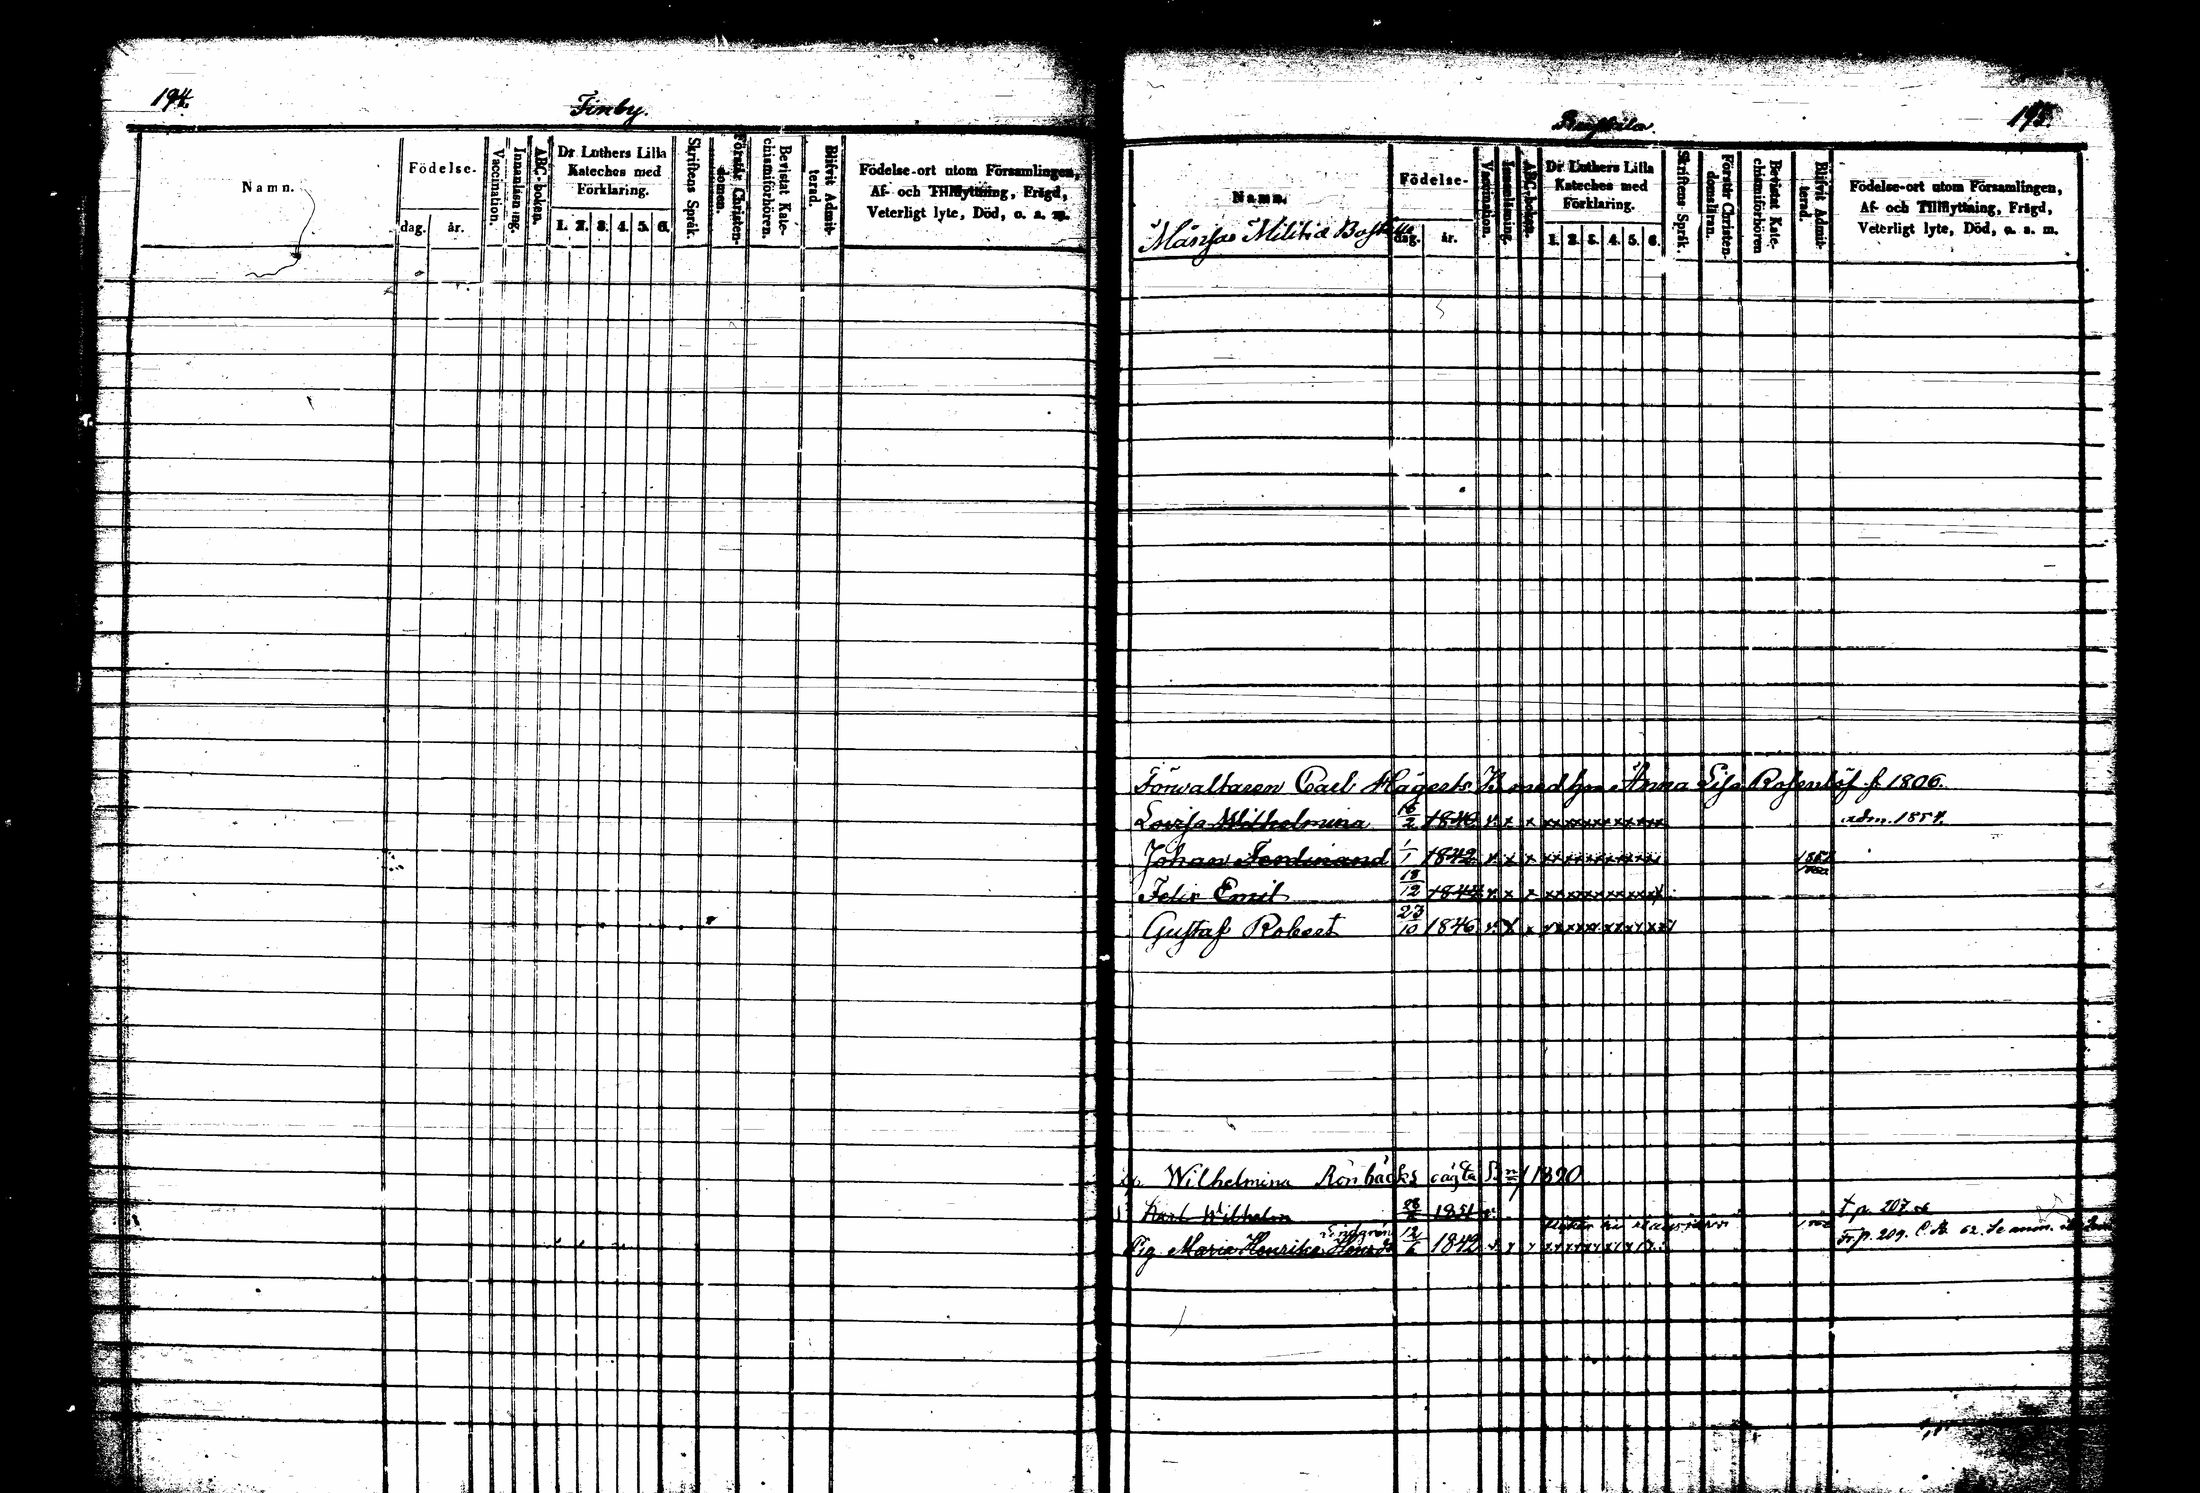 194.
Finby.
Namn.
Födelse-
dag. år.
Vaccination.
Innanläsning.
ABC-boken.
Dr Luthers Lilla Kateches med Förklaring.
1. 2. 3. 4. 5. 6.
Skriftens Språk.
Förstår Christendomen.
Bevistat Katechismiförhören.
Blifvit Admitterad.
Födelse-ort utom Församlingen,
Af- och Tillflyttning, Frägd,
Veterligt lyte, Död, o. s. m.
195.
Namn.
Månsas Militiæ Boställe
Födelse-
dag. år.
Vaccination.
Innanläsning.
ABC-boken.
Dr Luthers Lilla Kateches med Förklaring.
1. 2. 3. 4. 5. 6.
Skriftens Språk.
Förstår Christendomsläran.
Bevistat Katechismiförhören
Blifvit Admitterad.
Födelse-ort utom Församlingen,
Af- och Tillflyttning, Frägd,
Veterligt lyte, Död, o. s. m.
Förvaltaren Carl Hägerts B. med hu Anna Lisa Rosenlöf f. 1806.
Lovisa Wilhelmina 16/2 1840 v. x x xxxxxxxxxxx adm. 1857.
Johan Ferdinand 1/1 1842 v. x x xxxxxxxxxxx
Felix Emil 18/12 1844 v. x x xxxxxxxxxxx
Gustaf Robert 23/10 1846 v. x x xxxxxxxxxxx
Wilhelmina Rönbäcks oägta 1820
Karl Wilhelm 1851 v. † p. 207
Pig. Maria Henrika 12/6 1842 v. x x Fr. p. 209.